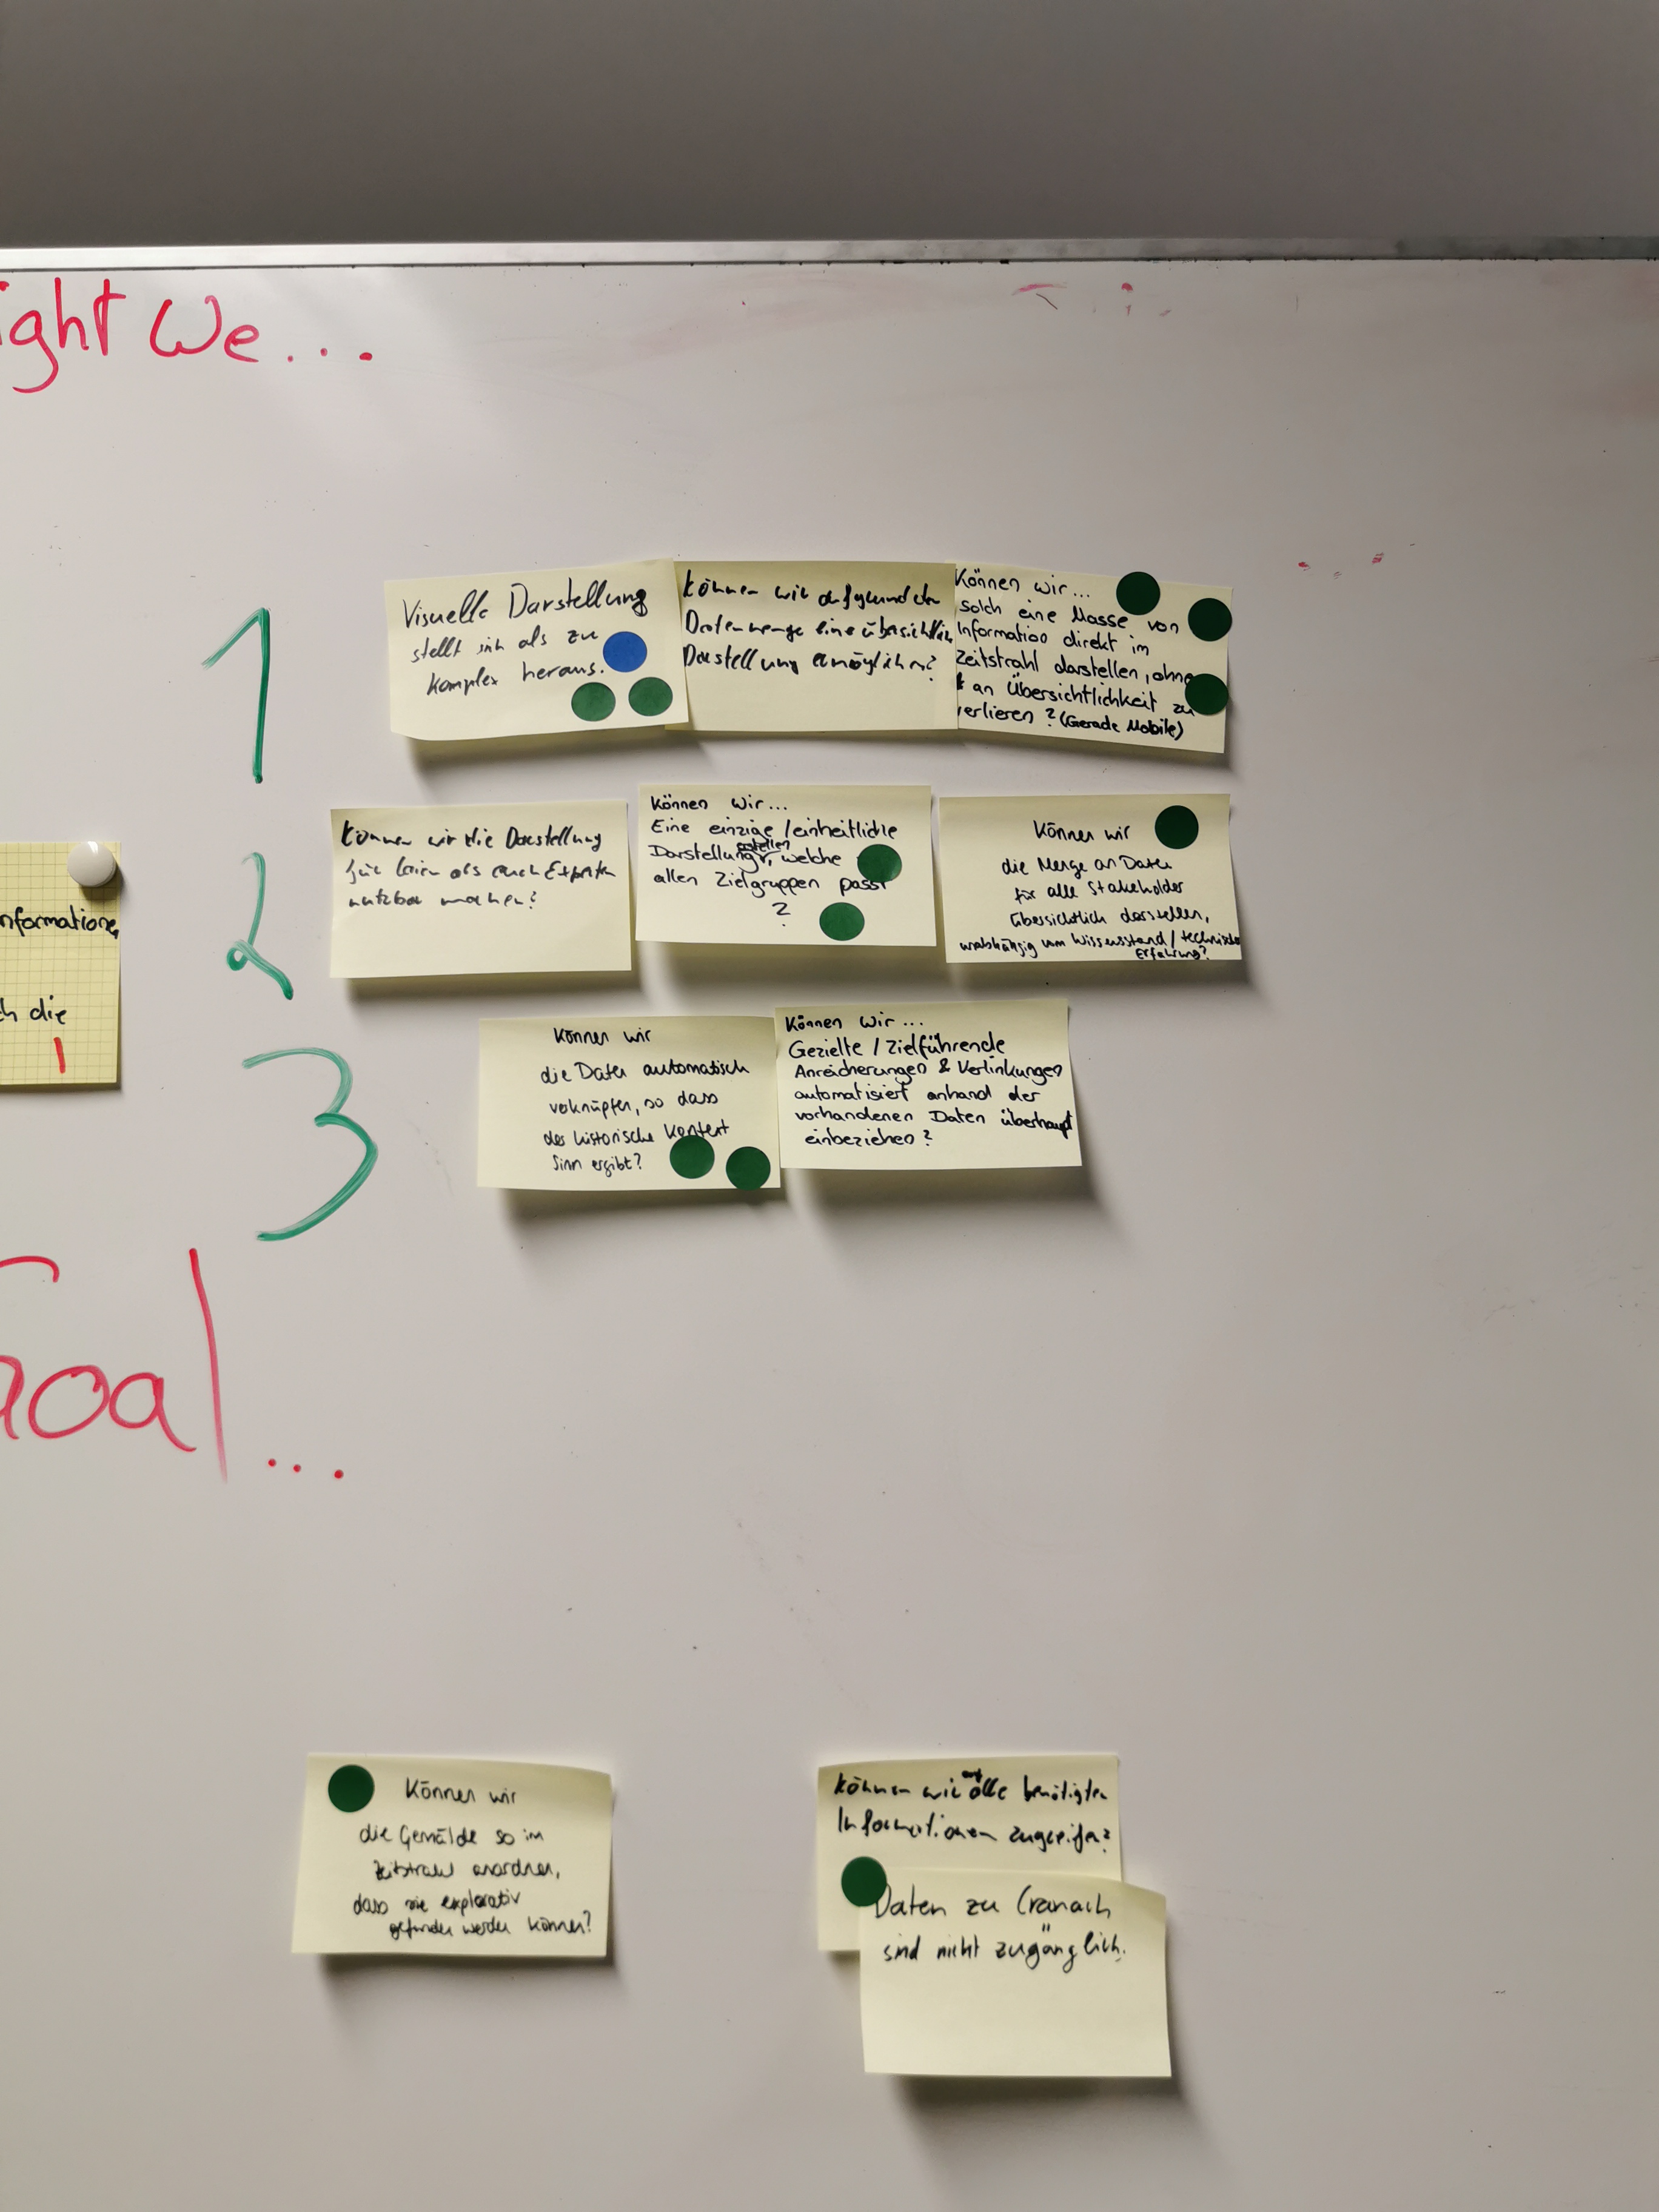 ight We...
1
Visuelle Darstellung
stellt sich als zu
komplex heraus.
Können wir aufgrund der
Datenmenge eine übersichtliche
Darstellung ermöglichen?
Können wir...
solch eine Masse von
Information direkt im
Zeitstrahl darstellen, ohne
an Übersichtlichkeit zu
verlieren? (Gerade Mobile)
2
Können wir die Darstellung
für Laien als auch Experten
nutzbar machen?
Können Wir...
Eine einzige/einheitliche
Darstellung erstellen, welche
allen Zielgruppen passt
?
Können wir
die Menge an Daten
für alle Stakeholder
übersichtlich darstellen,
unabhängig vom Wissensstand/technische
Erfahrung?
nformationen
ch die
1
3
Können wir
die Daten automatisch
verknüpfen, so dass
der historische Kontext
Sinn ergibt?
Können Wir...
Gezielte / Zielführende
Anreicherungen & Verlinkungen
automatisiert anhand der
vorhandenen Daten überhaupt
einbeziehen?
Goal...
Können wir
die Gemälde so im
Zeitstrahl anordnen,
dass sie explorativ
gefunden werden können?
Können wir auf alle benötigten
Informationen zugreifen?
Daten zu Cranach
sind nicht zugänglich.